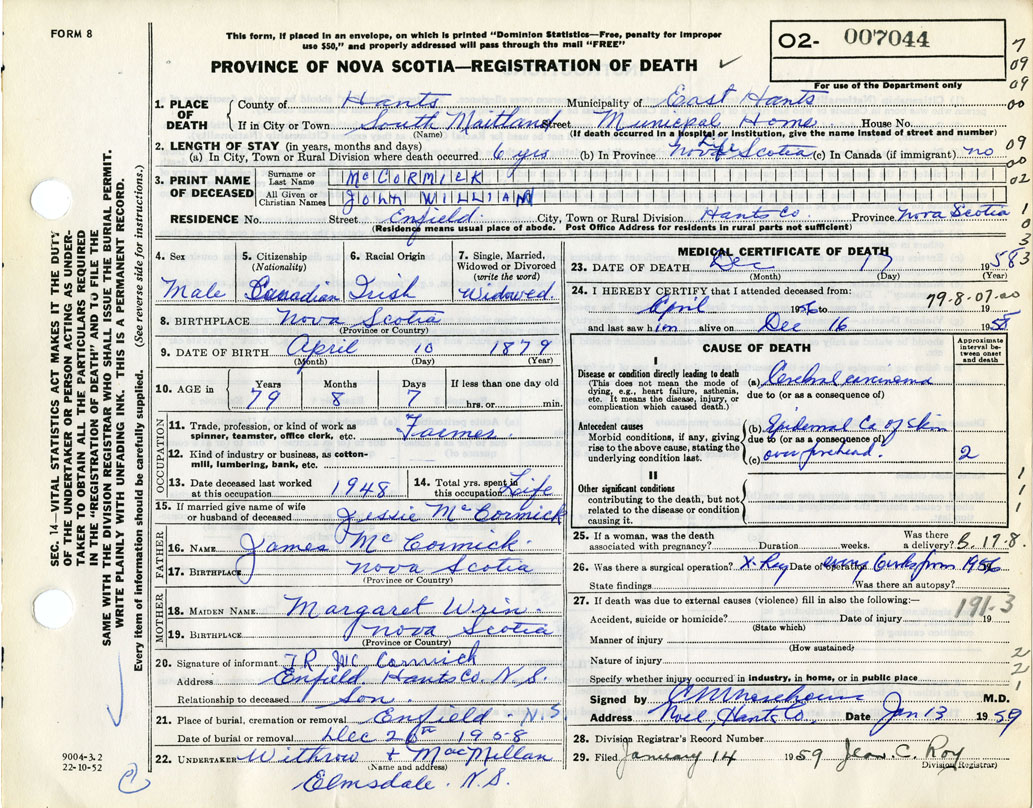 FORM 8
This form, if placed in an envelope, on which is printed "Dominion Statistics—Free, penalty for improper
use $50," and properly addressed will pass through the mail "FREE"
PROVINCE OF NOVA SCOTIA—REGISTRATION OF DEATH ✓
O2- 007044
For use of the Department only
7
09
09
00
09
00
02
1
0
3
3
1. PLACE OF DEATH { County of Hants Municipality of East Hants
If in City or Town South Maitland Street Municpal Home House No.
(Name) (If death occurred in a hospital or institution, give the name instead of street and number)
2. LENGTH OF STAY (in years, months and days)
(a) In City, Town or Rural Division where death occurred 6 yrs (b) In Province Life Nova Scotia (c) In Canada (if immigrant) no
3. PRINT NAME OF DECEASED { Surname or Last Name McCORMICK
All Given or Christian Names JOHN WILLIAM
RESIDENCE No. Street Enfield City, Town or Rural Division Hants Co. Province Nova Scotia
(Residence means usual place of abode. Post Office Address for residents in rural parts not sufficient)
4. Sex 5. Citizenship (Nationality) 6. Racial Origin 7. Single, Married, Widowed or Divorced (write the word)
Male Canadian Irish Widowed
8. BIRTHPLACE Nova Scotia
(Province or Country)
9. DATE OF BIRTH April 10 1879
(Month) (Day) (Year)
10. AGE in { Years Months Days If less than one day old
79 8 7 hrs. or min.
OCCUPATION
11. Trade, profession, or kind of work as spinner, teamster, office clerk, etc. Farmer.
12. Kind of industry or business, as cotton-mill, lumbering, bank, etc.
13. Date deceased last worked at this occupation 1948 14. Total yrs. spent in this occupation Life
15. If married give name of wife or husband of deceased Jessie McCormick
FATHER
16. NAME James McCormick.
17. BIRTHPLACE Nova Scotia
(Province or Country)
MOTHER
18. MAIDEN NAME Margaret Wrin.
19. BIRTHPLACE Nova Scotia
(Province or Country)
20. Signature of informant J R McCormick
Address Enfield Hants Co. N.S.
Relationship to deceased Son.
21. Place of burial, cremation or removal Enfield - N.S.
Date of burial or removal Dec 20th 1958
22. UNDERTAKER Withrow + MacMillan
(Name and address)
Elmsdale. N.S.
MEDICAL CERTIFICATE OF DEATH
23. DATE OF DEATH Dec 17 1958
(Month) (Day) (Year)
24. I HEREBY CERTIFY that I attended deceased from:
April 1956 to 19
79-8-07-00
and last saw him alive on Dec 16 1958
CAUSE OF DEATH
Approximate interval between onset and death
I
Disease or condition directly leading to death
(This does not mean the mode of dying, e.g., heart failure, asthenia, etc. It means the disease, injury, or complication which caused death.)
(a) Cerebral carcinoma
due to (or as a consequence of)
Antecedent causes
Morbid conditions, if any, giving rise to the above cause, stating the underlying condition last.
(b) Epidermal Ca of Skin
due to (or as a consequence of)
(c) over forehead. 2
II
Other significant conditions
contributing to the death, but not related to the disease or condition causing it.
1
1
1
25. If a woman, was the death associated with pregnancy? Duration weeks. Was there a delivery? 5.17.8.
26. Was there a surgical operation? X-Ray Date of operation from 1956
State findings Was there an autopsy?
27. If death was due to external causes (violence) fill in also the following:—
191-3
Accident, suicide or homicide? Date of injury 19
(State which)
Manner of injury
(How sustained)
Nature of injury
2
2
1
Specify whether injury occurred in industry, in home, or in public place
Signed by M.D.
Address Noel, Hants Co. Date Jan 13 1959
28. Division Registrar's Record Number
29. Filed January 14 1959 Jean C. Roy
(Division Registrar)
SEC. 14—VITAL STATISTICS ACT MAKES IT THE DUTY
OF THE UNDERTAKER OR PERSON ACTING AS UNDER-
TAKER TO OBTAIN ALL THE PARTICULARS REQUIRED
IN THE "REGISTRATION OF DEATH" AND TO FILE THE
SAME WITH THE DIVISION REGISTRAR WHO SHALL ISSUE THE BURIAL PERMIT.
WRITE PLAINLY WITH UNFADING INK. THIS IS A PERMANENT RECORD.
Every item of information should be carefully supplied. (See reverse side for instructions.)
9004-3.2
22-10-52